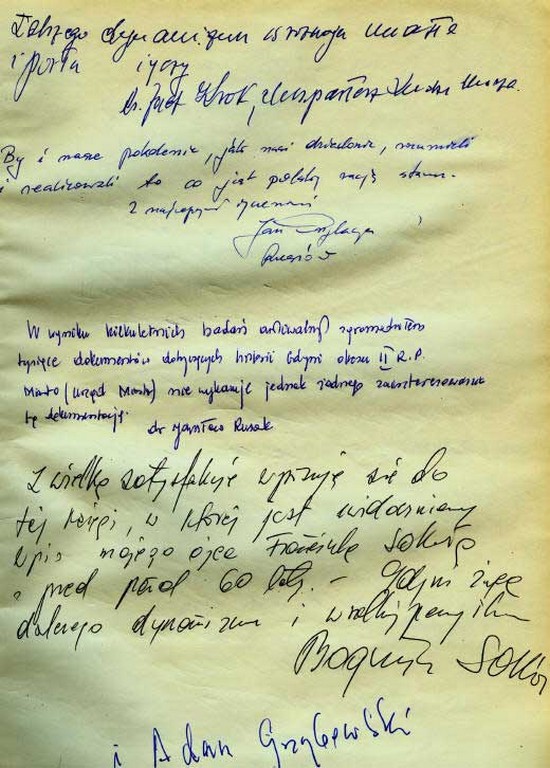 Dalszego dynamizmu w rozwoju miasta
i portu życzy
Dr. Józef Krok,
By i nasze pokolenie, jak nasi dziadowie, rozumieli
i realizowali to co jest polską racją stanu.
Z najlepszymi życzeniami
Jan
Rzeszów
W wyniku kilkuletnich badań archiwalnych zgromadziłem
tysiące dokumentów dotyczących historii Gdyni okresu II R.P.
Miasto (Urząd Miasta) nie wykazuje jednak żadnego zainteresowania
tą dokumentacją.
dr Jarosław Rusak
Z wielką satysfakcją wpisuję się do
tej księgi, w której jest uwidoczniony
wpis mojego ojca Franciszka Sokoła
sprzed ponad 60 laty. - Gdyni życzę
dalszego dynamizmu i wielkiej pomyślności
Bogusław Sokół
i Adam Grzybowski